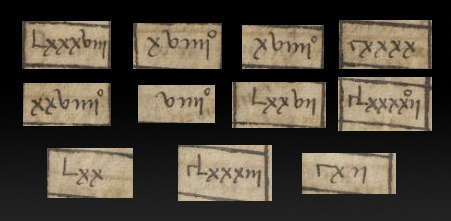 Lxxxviii xviiii° xviiii° cxxxx
viiii° Lxxvii cLxxxxii°
Lxx cLxxxiii cxii